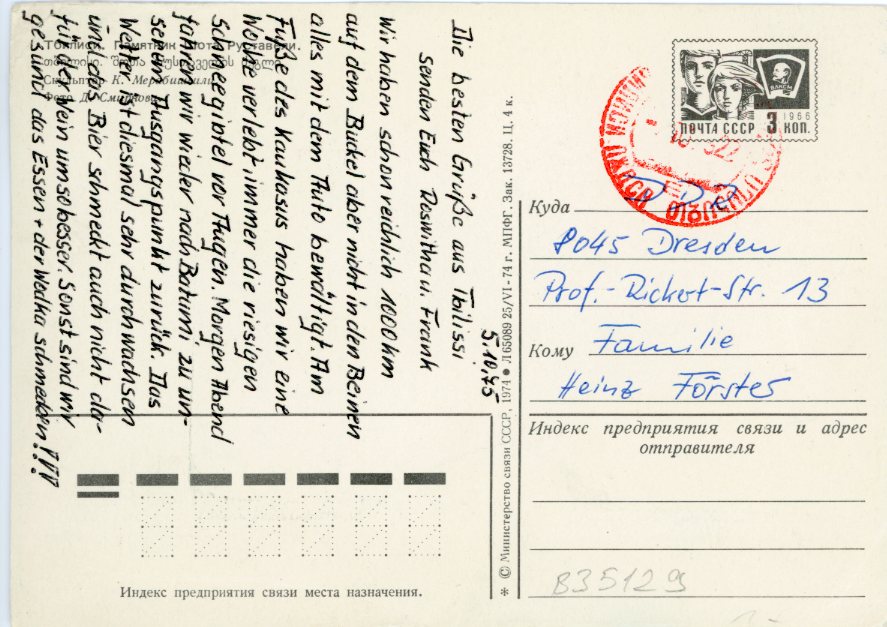 Тбилиси. Памятник Шота Руставели.
თბილისი. შოთა რუსთაველის ძეგლი
Скульптор К. Мерабишвили
Фото Д. Смирнова
5.10.75
Die besten Grüße aus Tbilissi
senden Euch Roswitha u. Frank
Wir haben schon reichlich 1000 km
auf dem Buckel aber nicht in den Beinen
alles mit dem Auto bewältigt. Am
Fuße des Kaukasus haben wir eine
Woche verlebt, immer die riesigen
Schneegipfel vor Augen. Morgen Abend
fahren wir wieder nach Batumi zu un-
serem Ausgangspunkt zurück. Das
Wetter ist diesmal sehr durchwachsen
und das Bier schmeckt auch nicht da-
für der Wein umso besser. Sonst sind wir
gesund das Essen + der Wodka schmecken!!!
Индекс предприятия связи места назначения.
* © Министерство связи СССР, 1974 ● Л 65089 25/VI-74 г. МПФГ. Зак. 13728. Ц. 4 к.
ВЛКСМ
1966
ПОЧТА СССР 3 КОП.
Куда DDR
8045 Dresden
Prof.-Rickert-Str. 13
Кому Familie
Heinz Förster
Индекс предприятия связи и адрес
отправителя
B35129